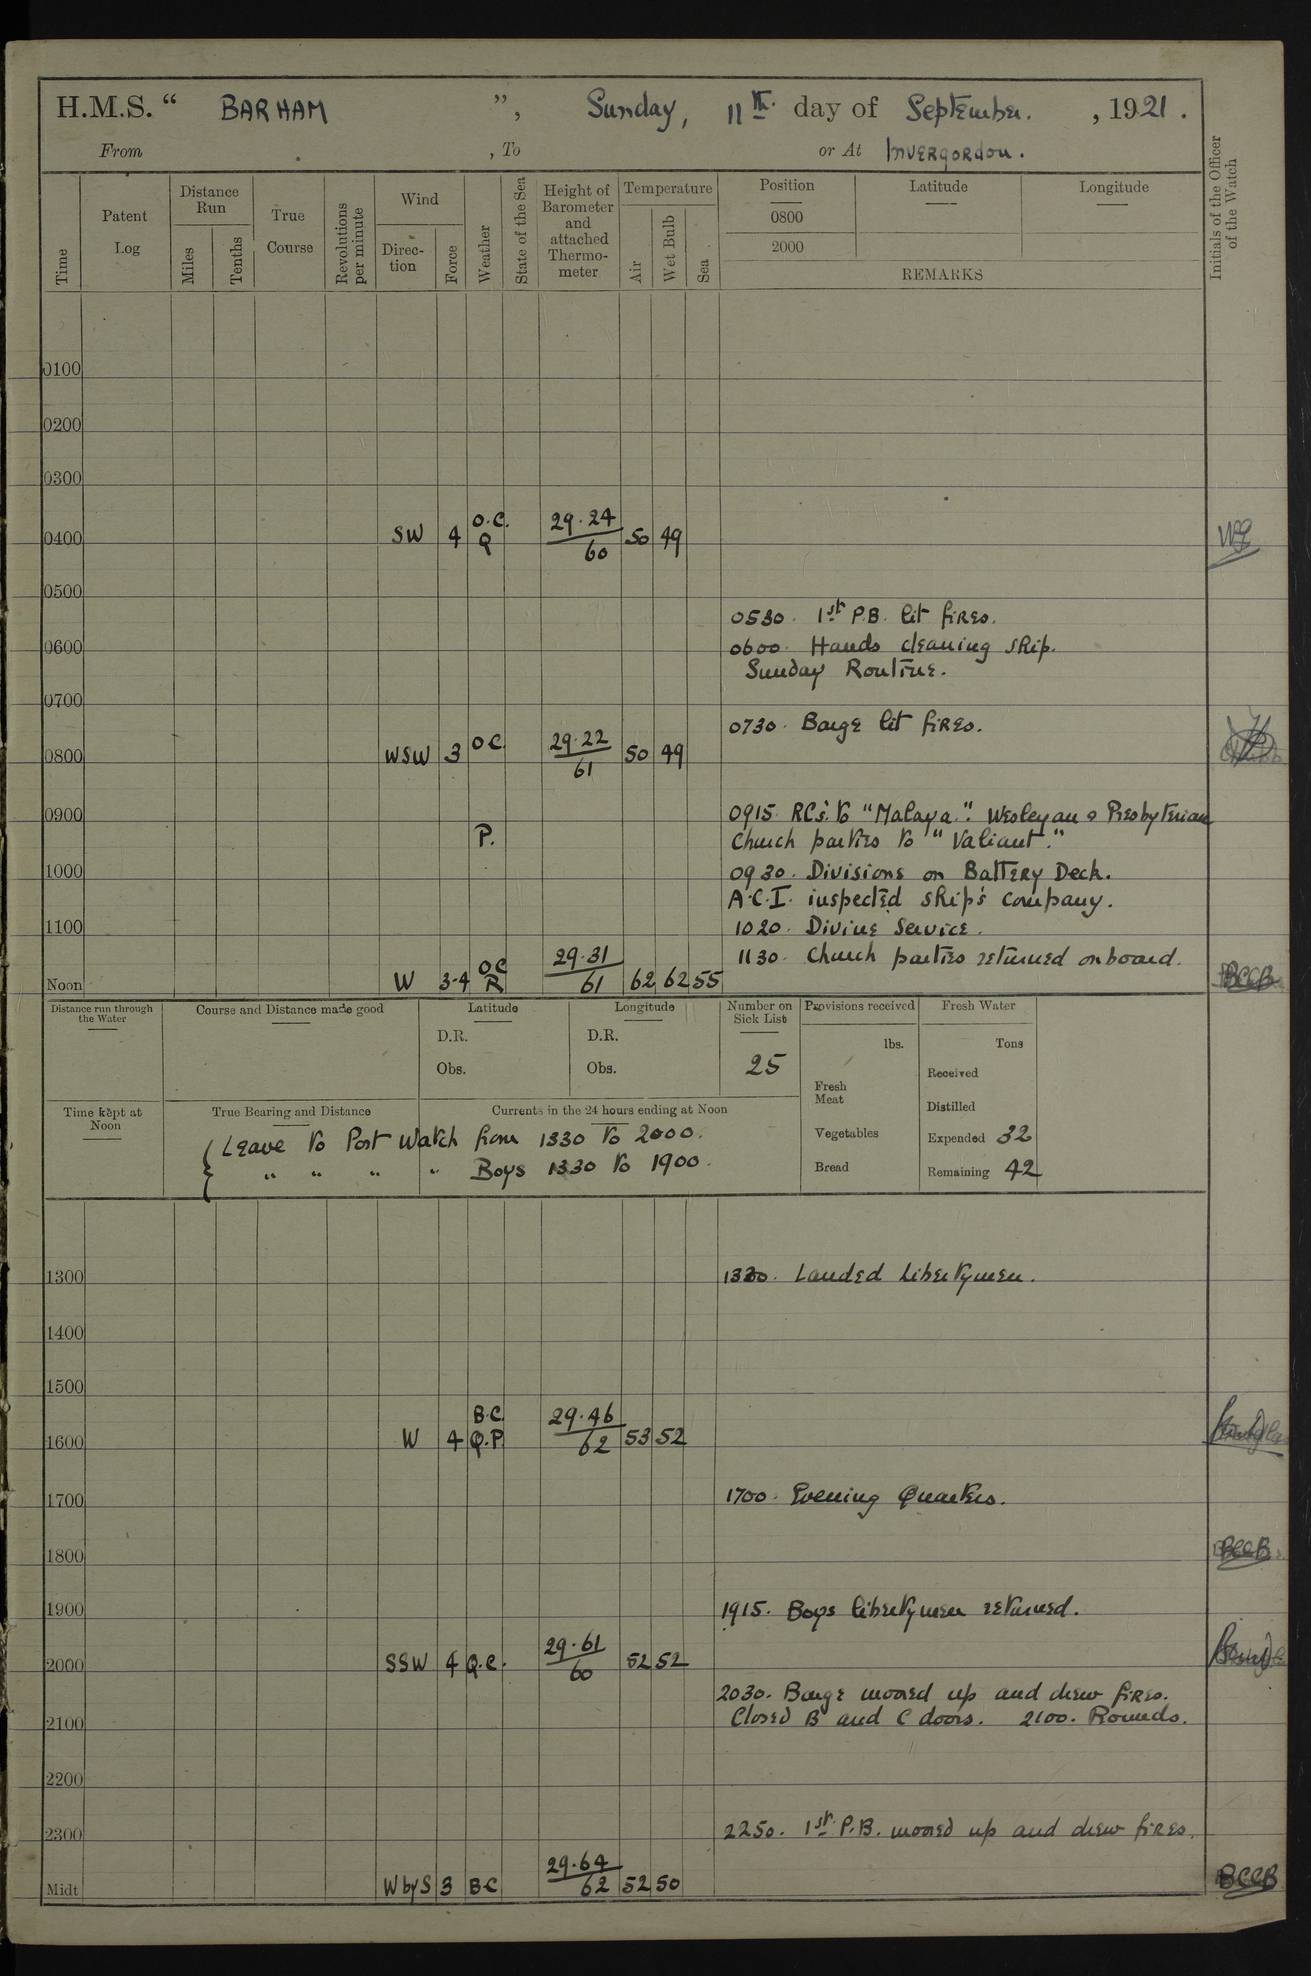 H.M.S. “ BARHAM ”, Sunday, 11th. day of September. , 1921.
From , To or At Invergordon.
Time
Patent Log
Distance Run
Miles
Tenths
True Course
Revolutions per minute
Wind
Direc-tion
Force
Weather
State of the Sea
Height of Barometer and attached Thermo-meter
Temperature
Air
Wet Bulb
Sea
Position Latitude Longitude
0800
2000
REMARKS
Initials of the Officer of the Watch
0100
0200
0300
0400 SW 4 O.C. Q 29.24 60 50 49
0500
0530. 1st P.B. lit fires.
0600 0600. Hands cleaning ship.
Sunday Routine.
0700
0730. Barge lit fires.
0800 WSW 3 OC 29.22 61 50 49
0900 0915. RCs. to “Malaya.”. Wesleyan & Presbyterian
P. Church parties to “Valiant.”
1000 0930. Divisions on Battery Deck.
A.C.I. inspected ship's company.
1100 1020. Divine Service.
1130. Church parties returned onboard.
Noon W 3-4 OC R 29.31 61 62 62 55 BCCB
Distance run through the Water
Course and Distance made good
Latitude
D.R.
Obs.
Longitude
D.R.
Obs.
Number on Sick List
25
Provisions received
lbs.
Fresh Meat
Vegetables
Bread
Fresh Water
Tons
Received
Distilled
Expended 32
Remaining 42
Time kept at Noon
True Bearing and Distance
Currents in the 24 hours ending at Noon
Leave to Port Watch from 1330 to 2000.
" " " " Boys 1330 to 1900.
1300 1330. Landed libertymen.
1400
1500
1600 W 4 B.C. Q.P. 29.46 62 53 52
1700 1700. Evening Quarters.
1800 BCCB
1900 1915. Boys libertymen returned.
2000 SSW 4 Q.C. 29.61 60 52 52
2030. Barge moored up and drew fires.
2100 Closed B and C doors. 2100. Rounds.
2200
2300 2250. 1st P.B. moored up and drew fires.
Midt W by S 3 BC 29.64 62 52 50 BCCB